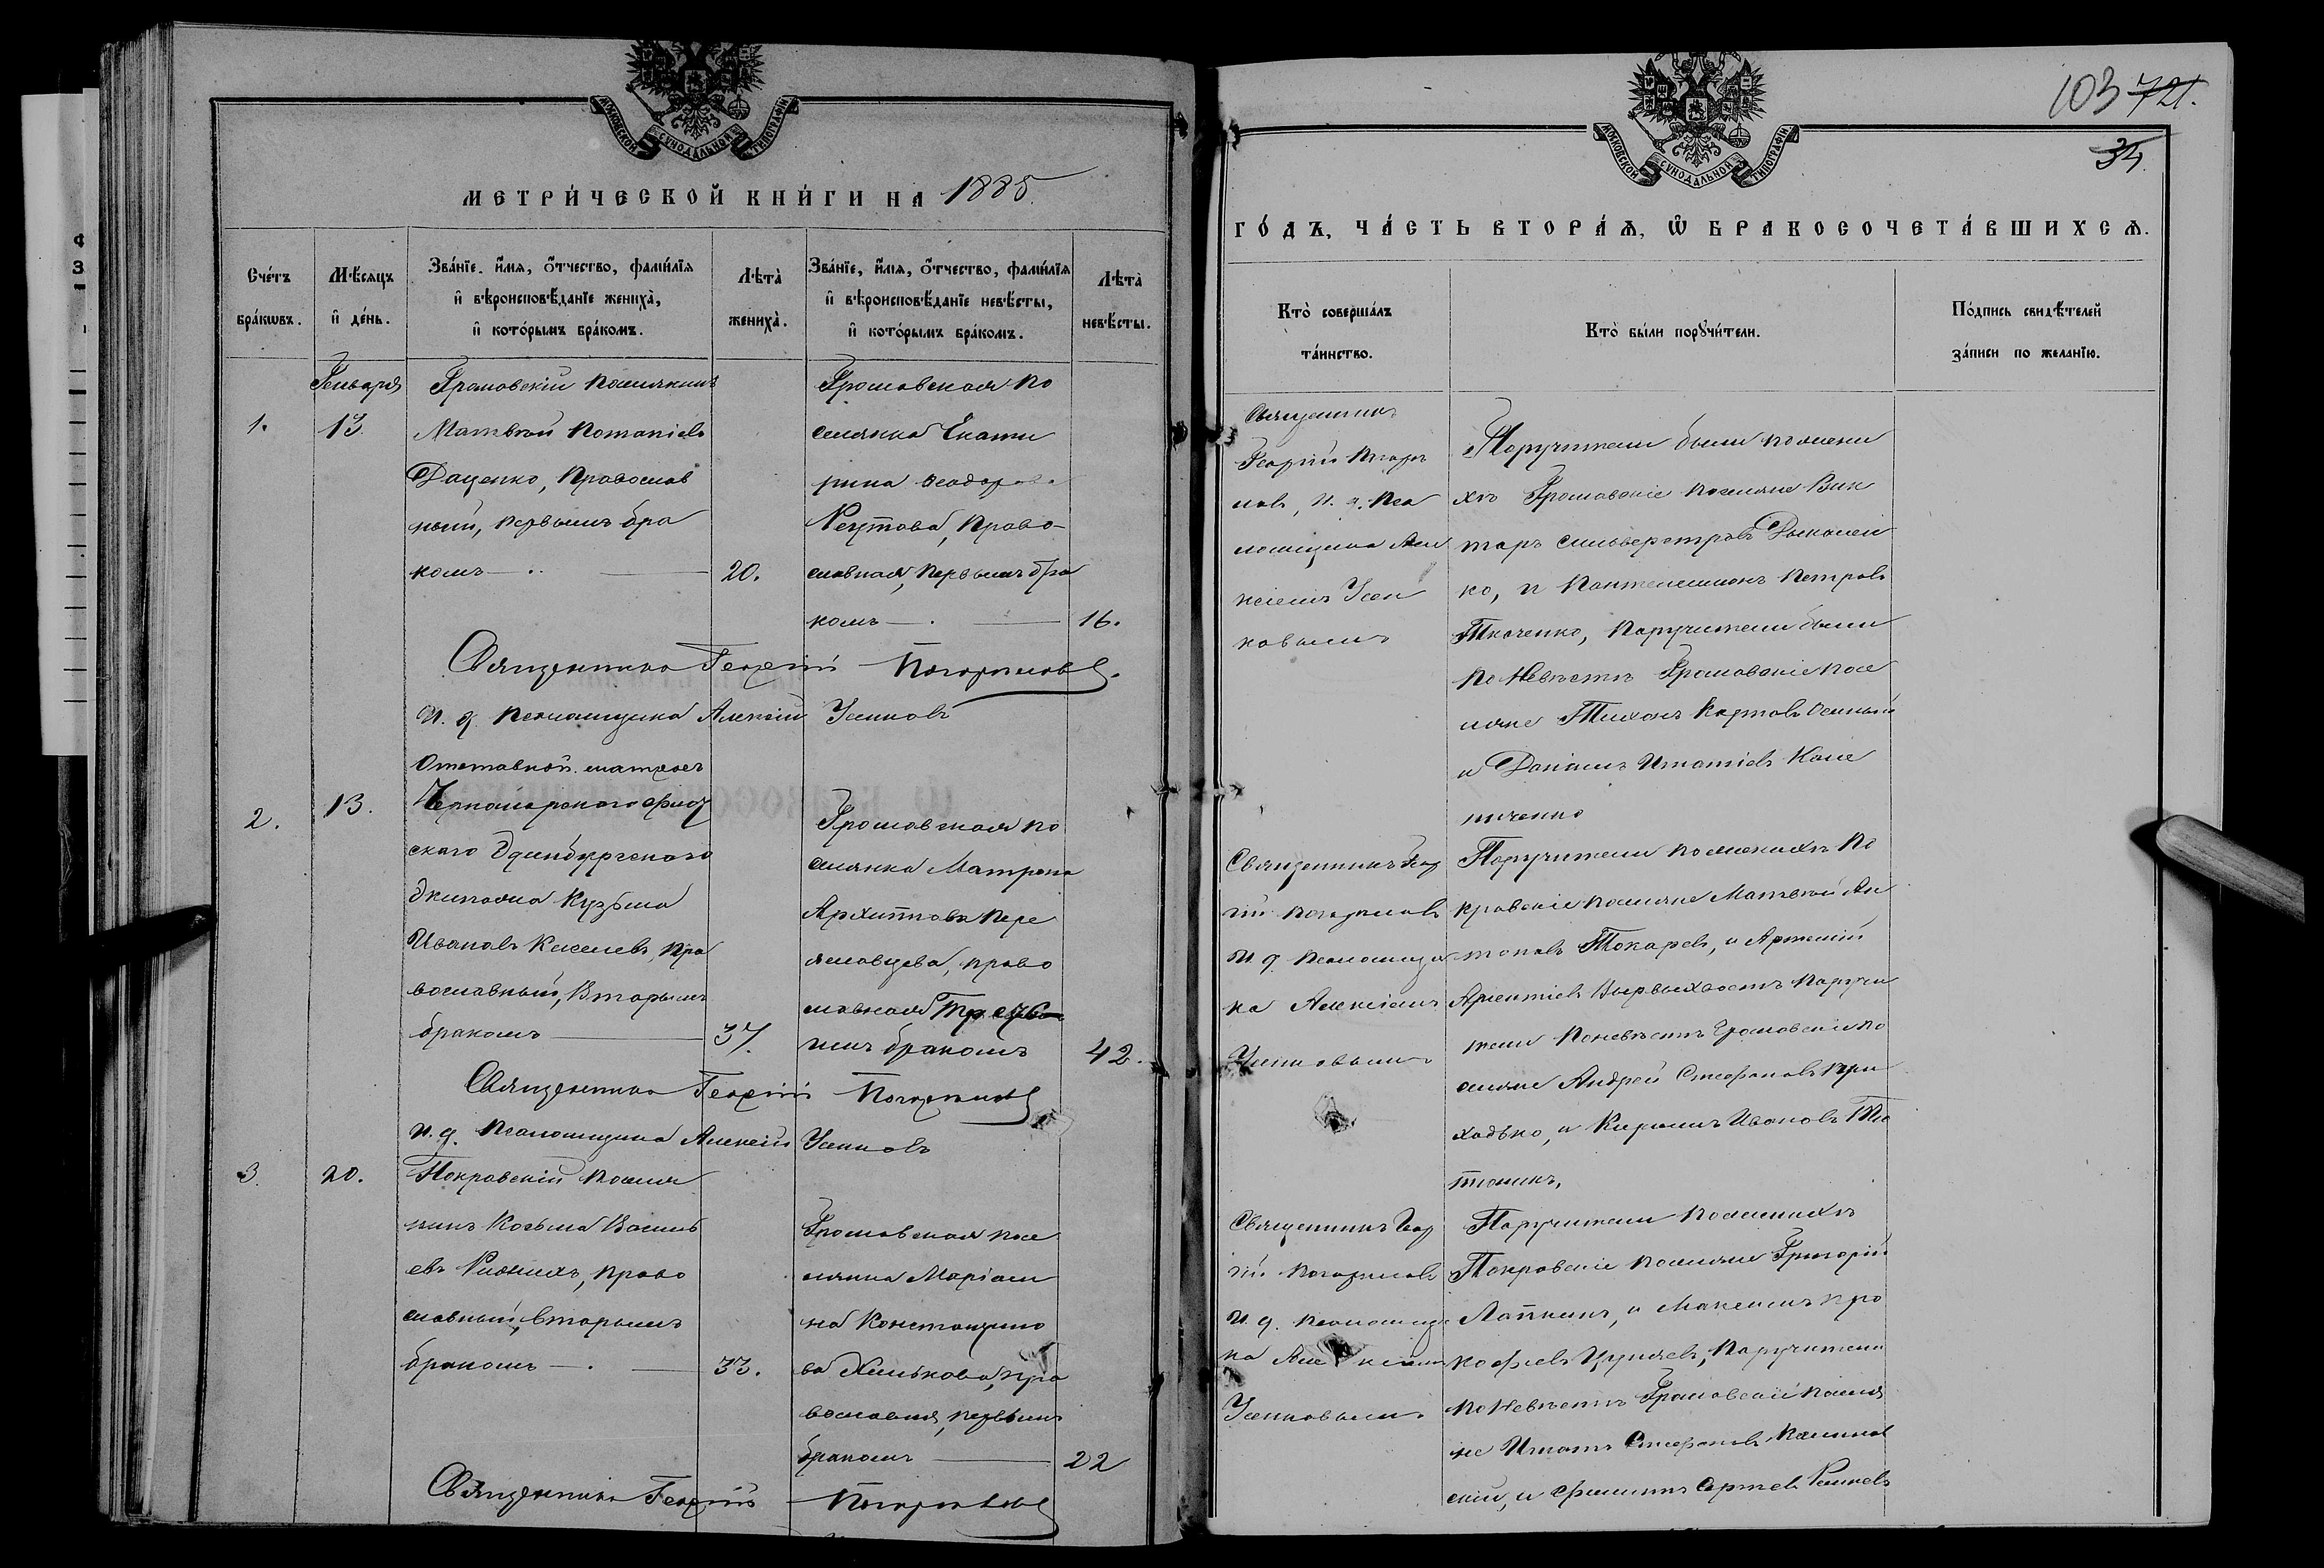 МОСКОВСКОЙ СѴНОДАЛЬНОЙ ТИПОГРАФІИ
МЕТРИ́ЧЕСКОЙ КНИ́ГИ НА 1885.
Сче́тъ
бра́кѡвъ.
Мѣ́сяцъ
и҆ де́нь.
Зва́нїе, и҆́мя, ѻ҆́тчество, фами́лїя
и҆ вѣроисповѣ́данїе жениха̀,
и҆ кото́рымъ бра́комъ.
Лѣ́та
жениха̀.
Зва́нїе, и҆́мя, ѻ҆́тчество, фами́лїя
и҆ вѣроисповѣ́данїе невѣ́сты,
и҆ кото́рымъ бра́комъ.
Лѣ́та
невѣ́сты.
1.
Генваря
13.
Громовскій поселянинъ
Матвѣй Потапіевъ
Даценко, Православ
ный, первымъ бра
комъ
20.
Громовская по
селянка Екате
рина Ѳеодорова
Реутова, Право-
славная, первымъ бра
комъ
16.
Священникъ Георгій Погориловъ.
И. д. Псаломщика Алексій Усенковъ
2.
13.
Отставной матросъ
Черноморского флот
скаго Эдинбургскаго
Экипажа Кузьма
Ивановъ Киселевъ, Пра
вославный, Вторымъ
бракомъ
37.
Громовская по
селянка Матрона
Архиппова Пере
яславцева, право
славная
бракомъ
42.
Священникъ Георгій Погориловъ
И. д. Псаломщика Алексій Усенковъ
3.
20.
Покровскій поселя
нинъ Козьма Василь
евъ право
славный, вторымъ
бракомъ
33.
Громовская посе
лянка Маріам
на Константино
ва Хилькова, пра
вославная, первымъ
бракомъ
22
Священникъ Георгій Погориловъ
103 721.
34.
МОСКОВСКОЙ СѴНОДАЛЬНОЙ ТИПОГРАФІИ
ГО́ДЪ, ЧА́СТЬ ВТОРА́Я, Ѡ҆ БРАКОСОЧЕТА́ВШИХСЯ.
Кто̀ соверша́лъ
та́инство.
Кто̀ бы́ли порꙋчи́тели.
По́дпись свидѣ́телей
за́писи по жела́нїю.
Священникъ
Георгій Погори
ловъ, И. д. Пса
ломщика Але
ксіемъ Усен
ковымъ
Поручители были по жени
хѣ Громовскіе поселяне Вик
торъ Сильверстровъ
ко, и Пантелеимонъ Петровъ
Ткаченко, Поручители были
по Невѣстѣ Громовскіе посе
ляне Тихонъ Карповъ
и Даніилъ Игнатіевъ
ниченко
Священникъ Геор
гій Погориловъ
И. д. Псаломщи
ка Алексіемъ
Усенковымъ
Поручители по женихѣ По
кровскіе поселяне Матвѣй Ан
тоновъ Токаревъ, и Арсеній
Вырвыхвостъ Поручи
тели по невѣстѣ Громовскіе по
селяне Андрей Стефановъ При
ходько, и Кирилъ Ивановъ
Священникъ Геор
гій Погориловъ
И. д. Псаломщи
ка Алексіемъ
Усенковымъ
Поручители по женихѣ
Покровскіе поселяне Григорій
Лапкинъ, и Максимъ Про
кофіевъ Поручители
по Невѣстѣ Громовскій поселя
не Игнатъ Стефановъ Калинов
скій, и Филиппъ Сергѣевъ